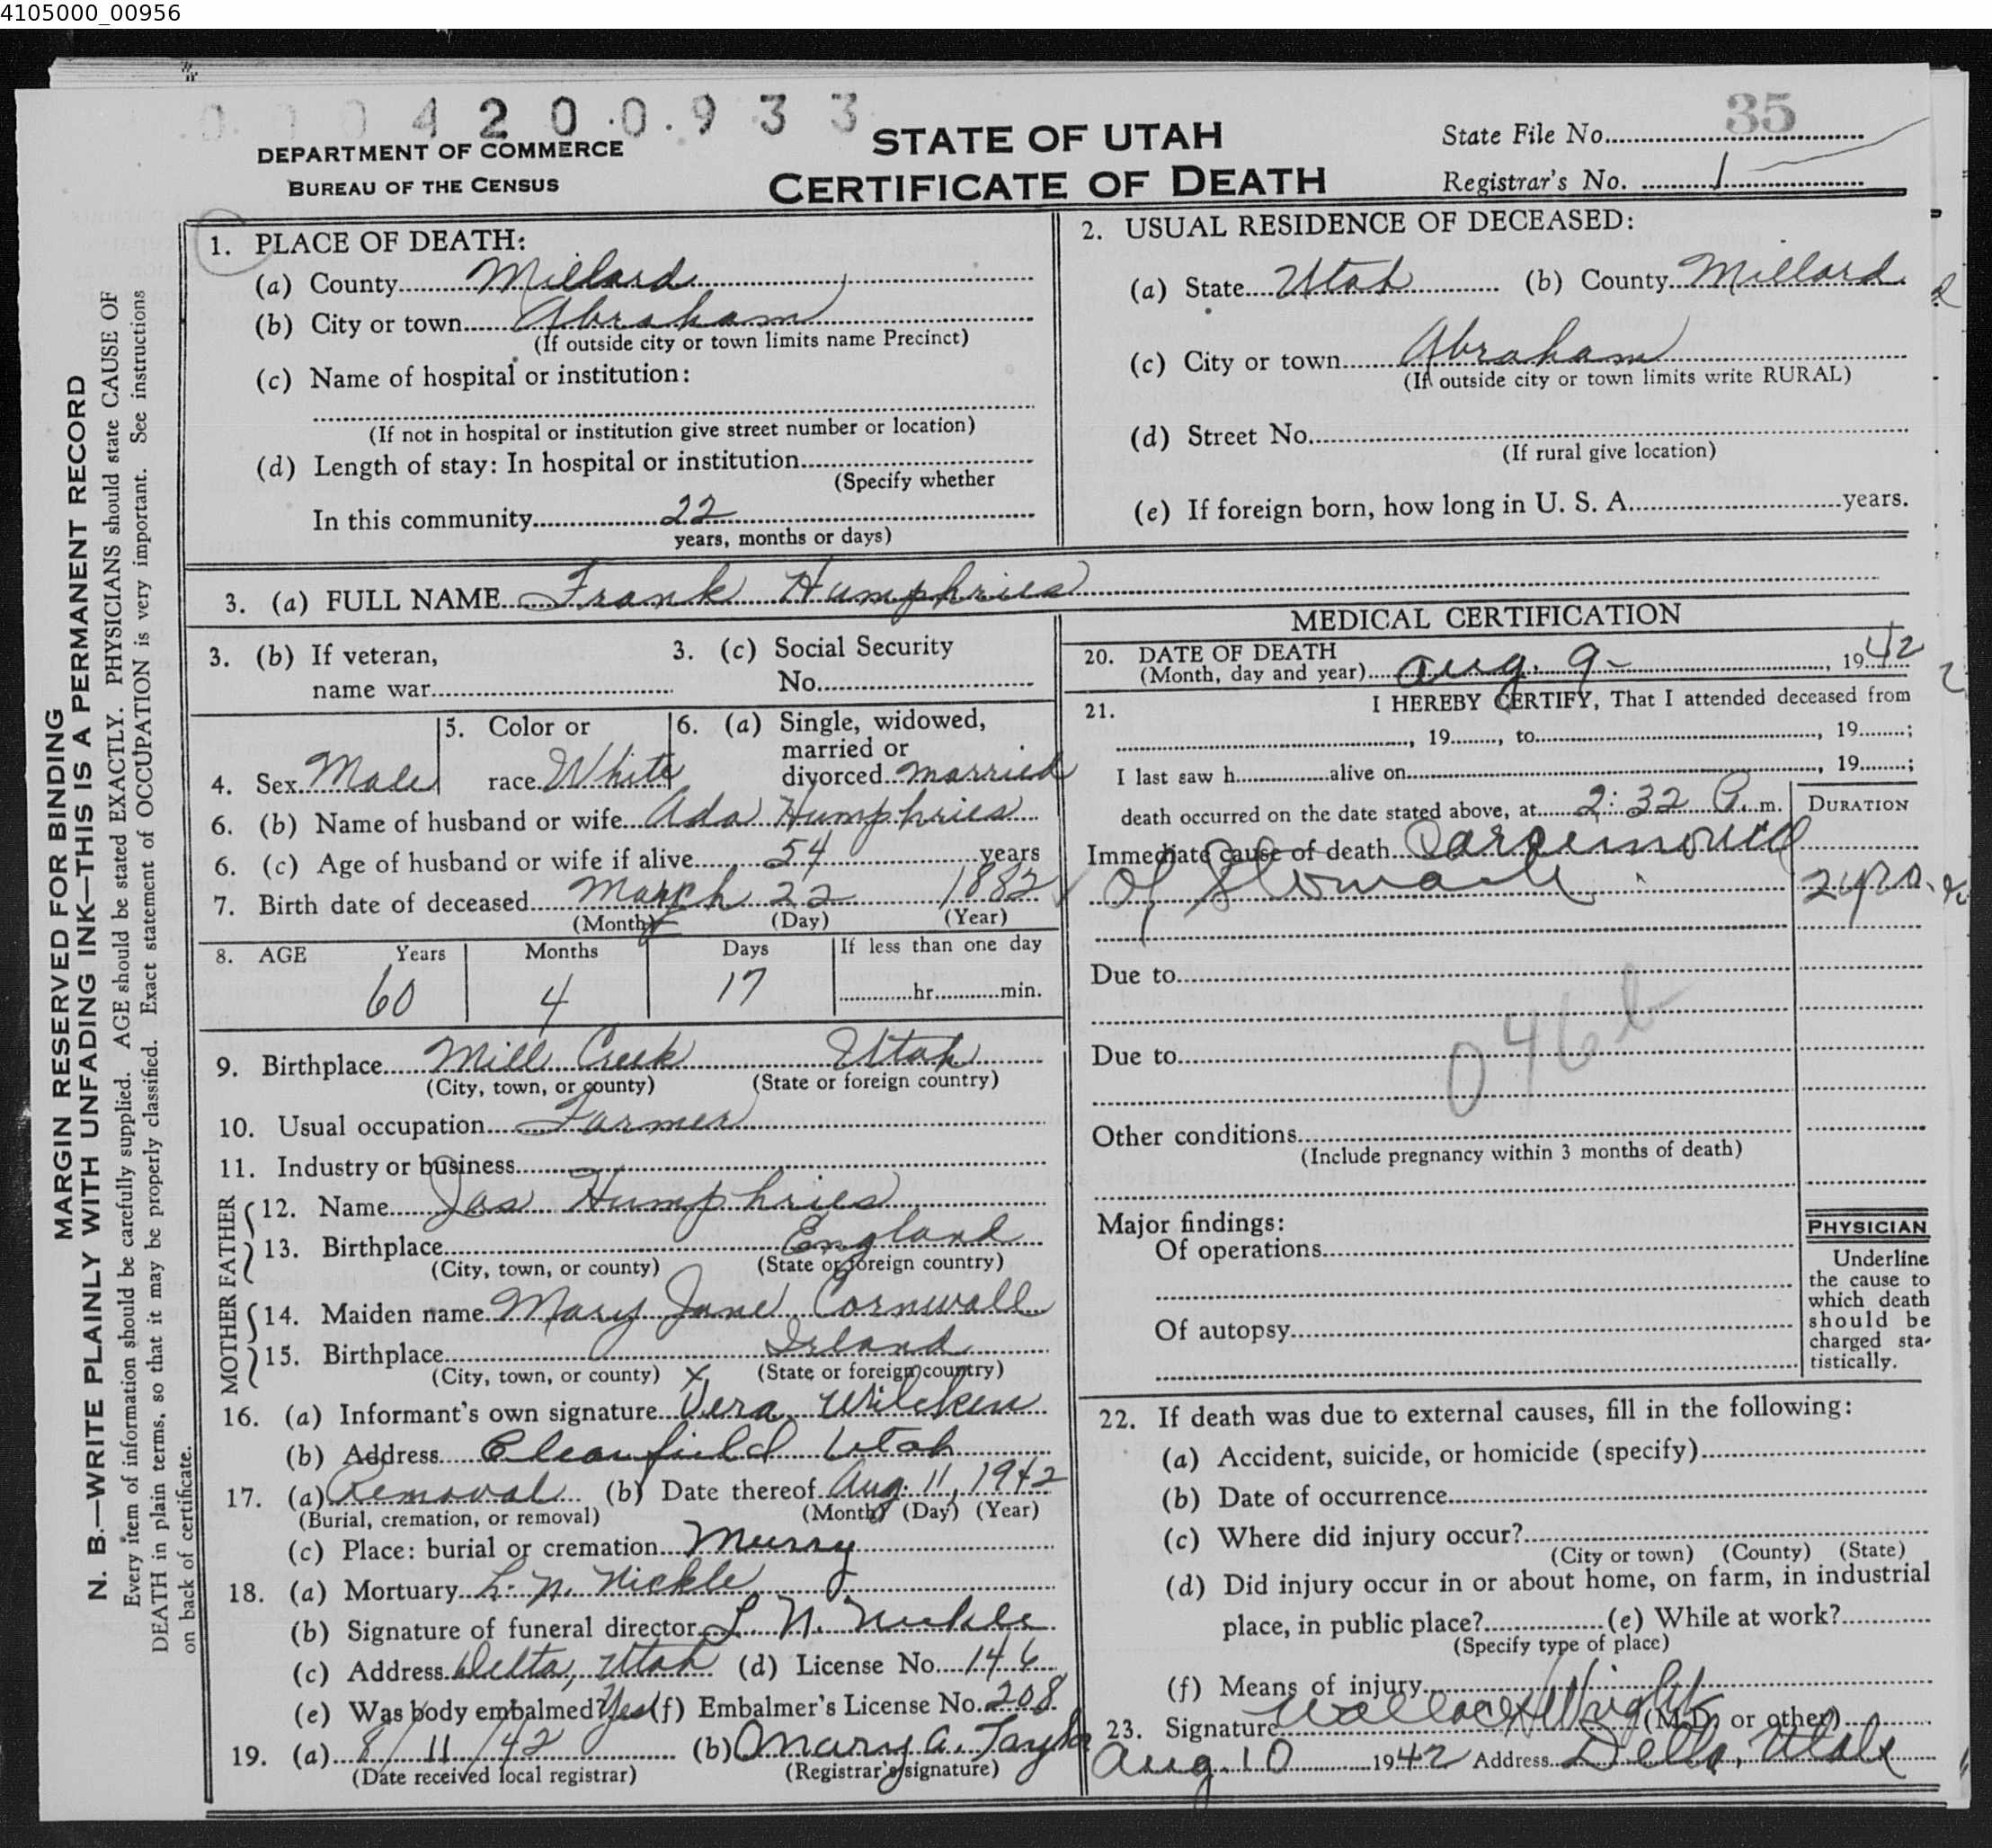 4105000_00956
0 0 0 4 2 0 0 9 3 3
35
DEPARTMENT OF COMMERCE
BUREAU OF THE CENSUS
STATE OF UTAH
CERTIFICATE OF DEATH
State File No.
Registrar's No. 1
MARGIN RESERVED FOR BINDING
N. B.—WRITE PLAINLY WITH UNFADING INK—THIS IS A PERMANENT RECORD
Every item of information should be carefully supplied. AGE should be stated EXACTLY. PHYSICIANS should state CAUSE OF
DEATH in plain terms, so that it may be properly classified. Exact statement of OCCUPATION is very important. See instructions
on back of certificate.
1. PLACE OF DEATH:
(a) County Millard
(b) City or town Abraham
(If outside city or town limits name Precinct)
(c) Name of hospital or institution:
(If not in hospital or institution give street number or location)
(d) Length of stay: In hospital or institution
(Specify whether
In this community 22
years, months or days)
2. USUAL RESIDENCE OF DECEASED:
(a) State Utah (b) County Millard
(c) City or town Abraham
(If outside city or town limits write RURAL)
(d) Street No.
(If rural give location)
(e) If foreign born, how long in U. S. A. years.
3. (a) FULL NAME Frank Humphries
3. (b) If veteran,
name war
3. (c) Social Security
No.
4. Sex Male
5. Color or
race White
6. (a) Single, widowed,
married or
divorced married
6. (b) Name of husband or wife Ada Humphries
6. (c) Age of husband or wife if alive 54 years
7. Birth date of deceased March 22 1882
(Month) (Day) (Year)
8. AGE Years Months Days If less than one day
60 4 17 hr. min.
9. Birthplace Mill Creek Utah
(City, town, or county) (State or foreign country)
10. Usual occupation Farmer
11. Industry or business
FATHER
12. Name Jas Humphries
13. Birthplace England
(City, town, or county) (State or foreign country)
MOTHER
14. Maiden name Mary Jane Cornwall
15. Birthplace Irland
(City, town, or county) (State or foreign country)
16. (a) Informant's own signature x Vera Wilcken
(b) Address Clearfield Utah
17. (a) Removal (b) Date thereof Aug. 11, 1942
(Burial, cremation, or removal) (Month) (Day) (Year)
(c) Place: burial or cremation Murry
18. (a) Mortuary L. N. Nickle
(b) Signature of funeral director L. N. Nickle
(c) Address Delta, Utah (d) License No. 146
(e) Was body embalmed? Yes (f) Embalmer's License No. 208
19. (a) 8/11/42 (b) Mary A. Taylor
(Date received local registrar) (Registrar's signature)
MEDICAL CERTIFICATION
20. DATE OF DEATH
(Month, day and year) Aug. 9-, 1942
21. I HEREBY CERTIFY, That I attended deceased from
, 19 , to , 19 ;
I last saw h alive on , 19 ;
death occurred on the date stated above, at 2:32 P. m.
DURATION
Immediate cause of death Carcinoma
of Stomach 2 yrs.
Due to
Due to
046b
Other conditions
(Include pregnancy within 3 months of death)
Major findings:
Of operations
Of autopsy
PHYSICIAN
Underline
the cause to
which death
should be
charged sta-
tistically.
22. If death was due to external causes, fill in the following:
(a) Accident, suicide, or homicide (specify)
(b) Date of occurrence
(c) Where did injury occur?
(City or town) (County) (State)
(d) Did injury occur in or about home, on farm, in industrial
place, in public place? (e) While at work?
(Specify type of place)
(f) Means of injury
23. Signature Wallace Wright (M.D. or other)
Aug. 10 1942 Address Delta, Utah